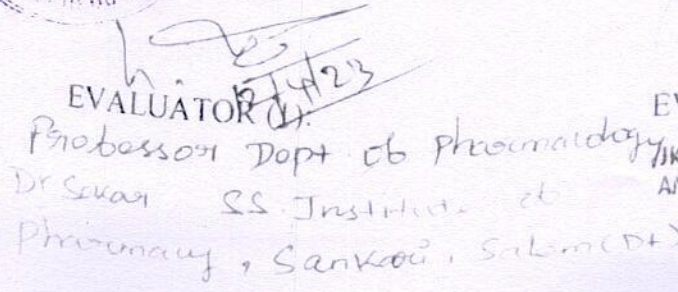 12/4/23
EVALUATOR
Professor Dept of pharmacology
Dr Sekar SS. Institute of
Pharmacy, Sankari, Salem (Dt)